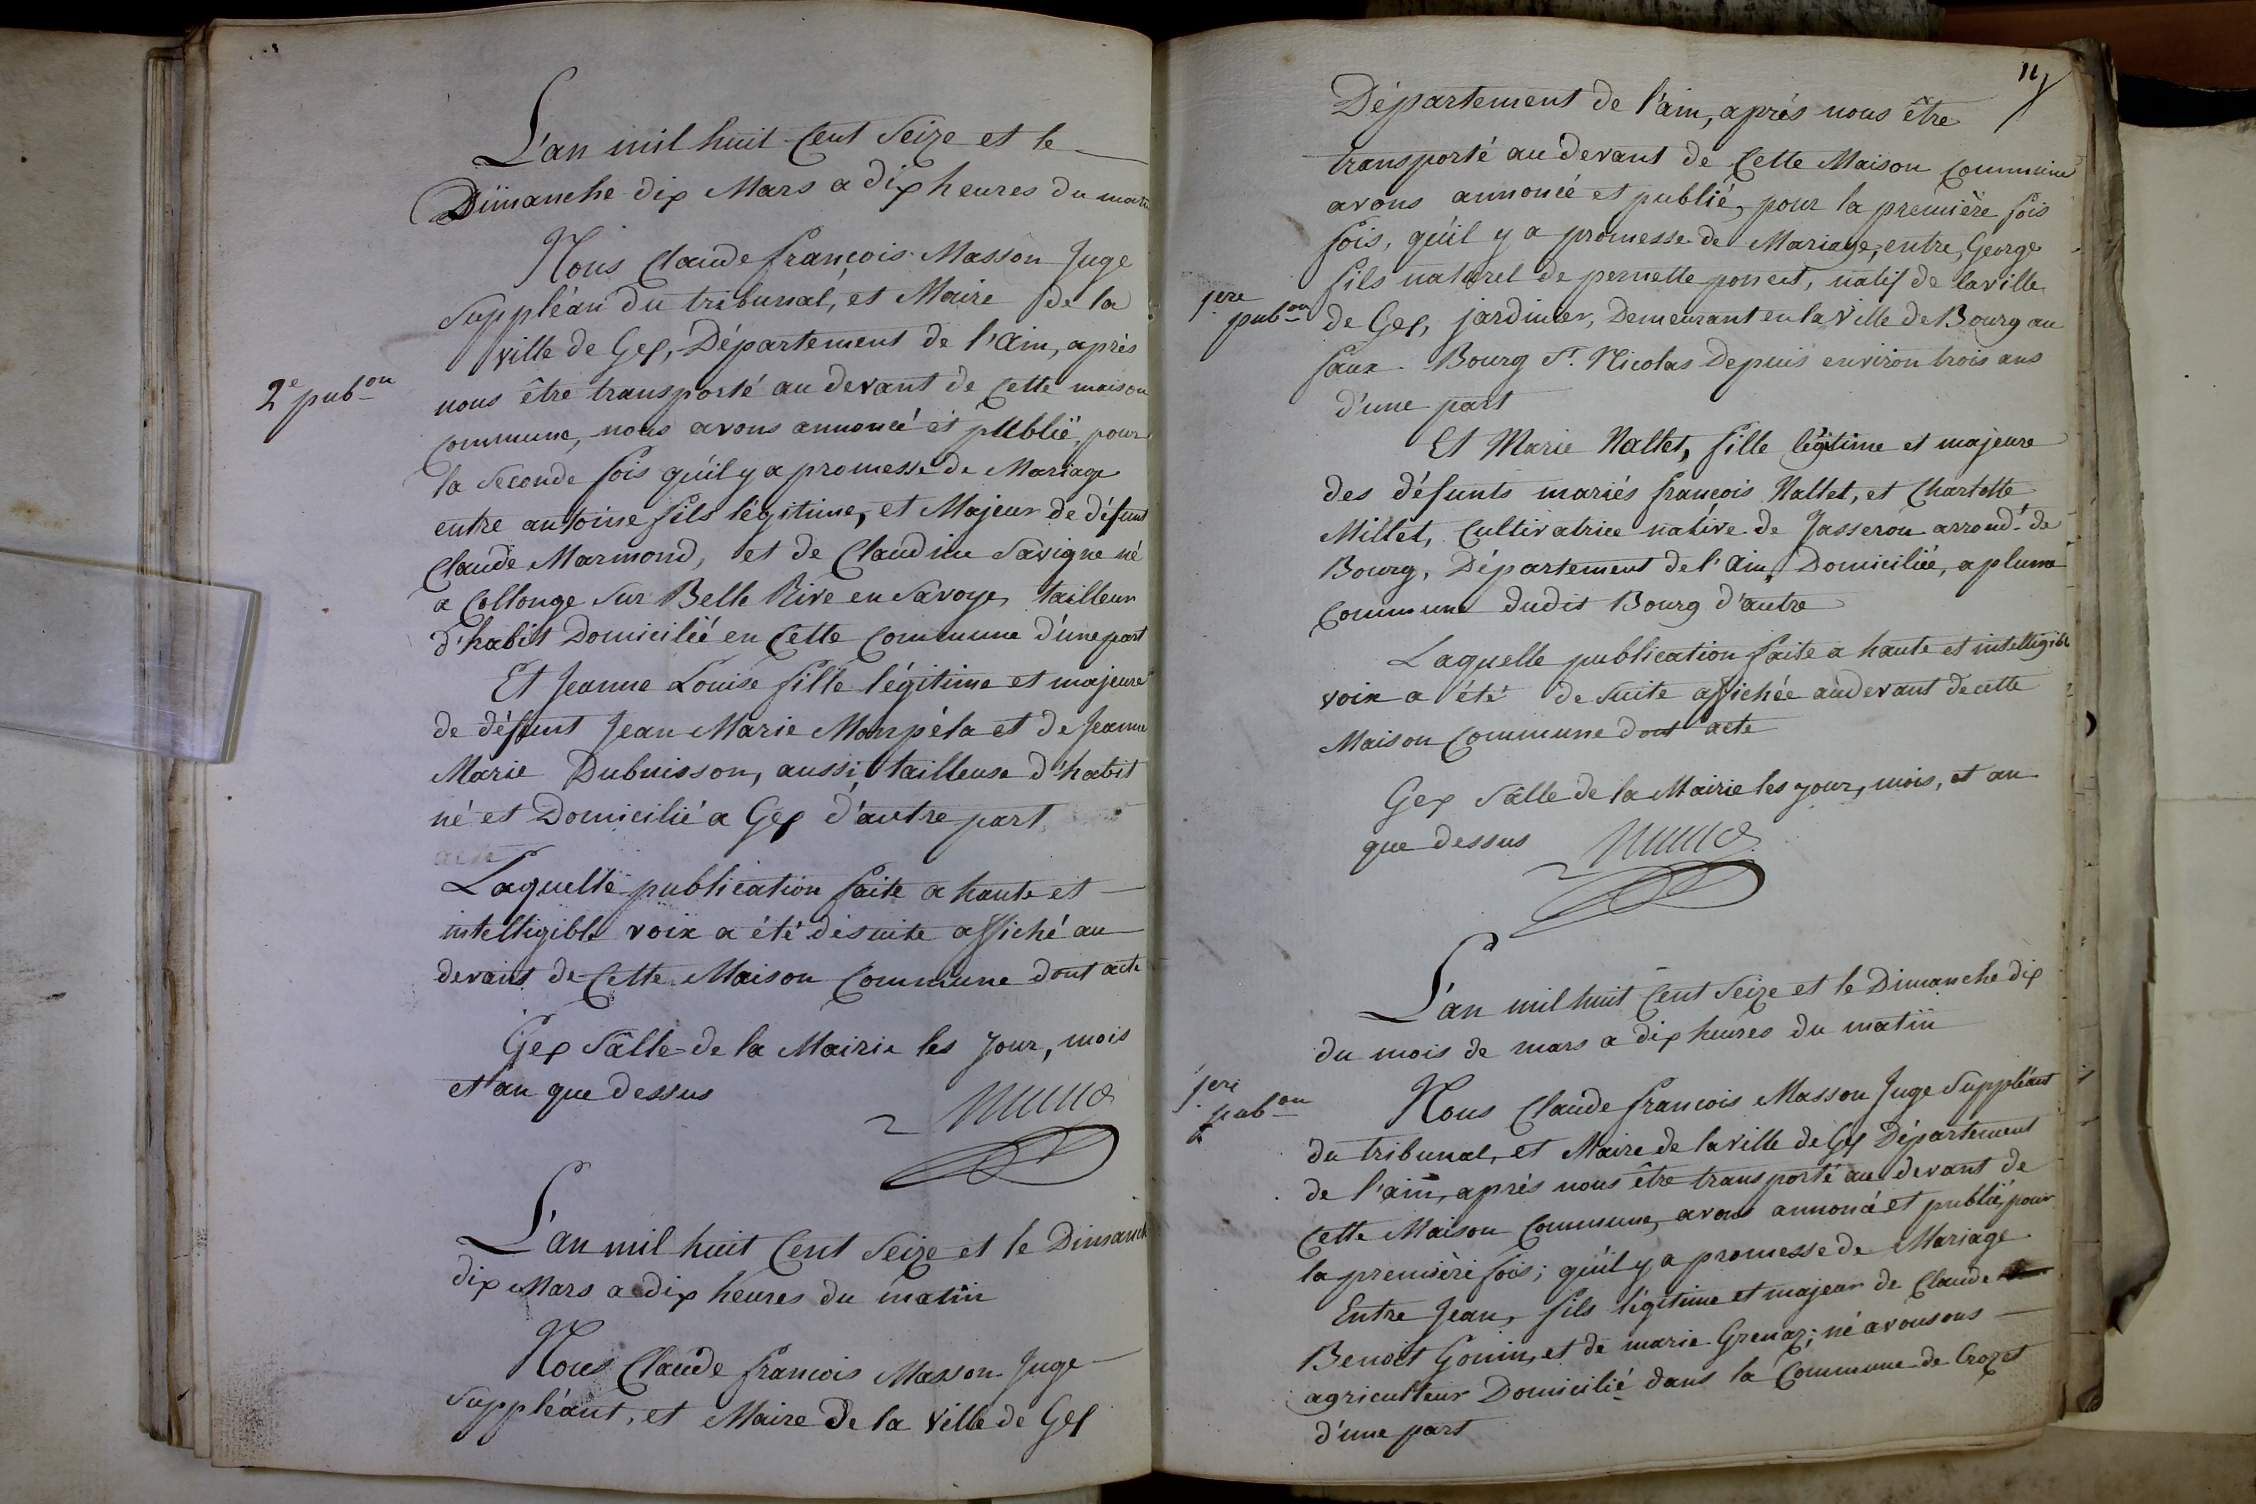 L'an mil huit Cent Seize et le
Dimanche dix Mars a dix heures du matin
Nous Claude françois Masson Juge
Suppléan du tribunal, et Maire de la
ville de Gex, Département de l'Ain, après
2e pubon
nous être transporté au devant de Cette maison
commune, nous avons annoncé et publié, pour
la Seconde fois qu'il y a promesse de Mariage
entre antoine fils légitime, et Majeur de défunt
Claude Marmond, et de Claudine Savigne né
a Collonge Sur Belle Rive en Savoye, tailleur
d'habit Domicilié en Cette Commune d'une part
Et Jeanne Louise fille légitime et majeure
de défunt Jean Marie Monpéla et de Jeanne
Marie Dubuisson, aussi tailleuse d'habit
né et Domicilié a Gex d'autre part
Laquelle publication faite a haute et
intelligible voix a été désuite affiché au
devant de Cette Maison Commune dont acte
Gex Sâlle de la Mairie les Jour, mois
et an que dessus
L'an mil huit Cent Seize et le Dimanch
dix Mars a dix heures du matin
Nous Claude francois Masson Juge
Suppléant, et Maire de la Ville de Gex
Département de l'ain, après nous être
transporté au devant de Cette Maison Commune
avons annoncé et publié, pour la première fois
fois, qu'il y a promesse de Mariage, entre, George
fils naturel de pernette poncet, natif de la ville
1ere
pubon
de Gex, jardinier, Demeurant en la Ville de Bourg au
faux Bourg St. Nicolas Depuis environ trois ans
d'une part
Et Marie Nallet, fille légitime et majeure
des défunts mariés françois Nallet, et Charlotte
Millet, Cultivatrice native de Jasseron arrondt de
Bourg, Département de l'Ain, Domiciliée, a plume
Commune dudit Bourg d'autre
Laquelle publication faite a haute et intelligibl
voix a été de suite affichée au devant de cette
Maison Commune dont acte
Gex Sâlle de la Mairie les jour, mois, et an
que dessus
L'an mil huit Cent Seize et le Dimanche dix
du mois de mars a dix heures du matin
1ere
pubon
Nous Claude francois Masson Juge Suppléant
du tribunal, et Maire de la ville de Gex Département
de l'ain, après nous être transporté au devant de
Cette Maison Commune, avons annoncé et publié, pour
la première fois; qu'il y a promesse de Mariage
Entre Jean, fils légitime et majeur de Claude
Benoit Gonin, et de marie Grenaz; né a vousons
agriculteur Domicilié dans la Commune de Crozet
d'une part